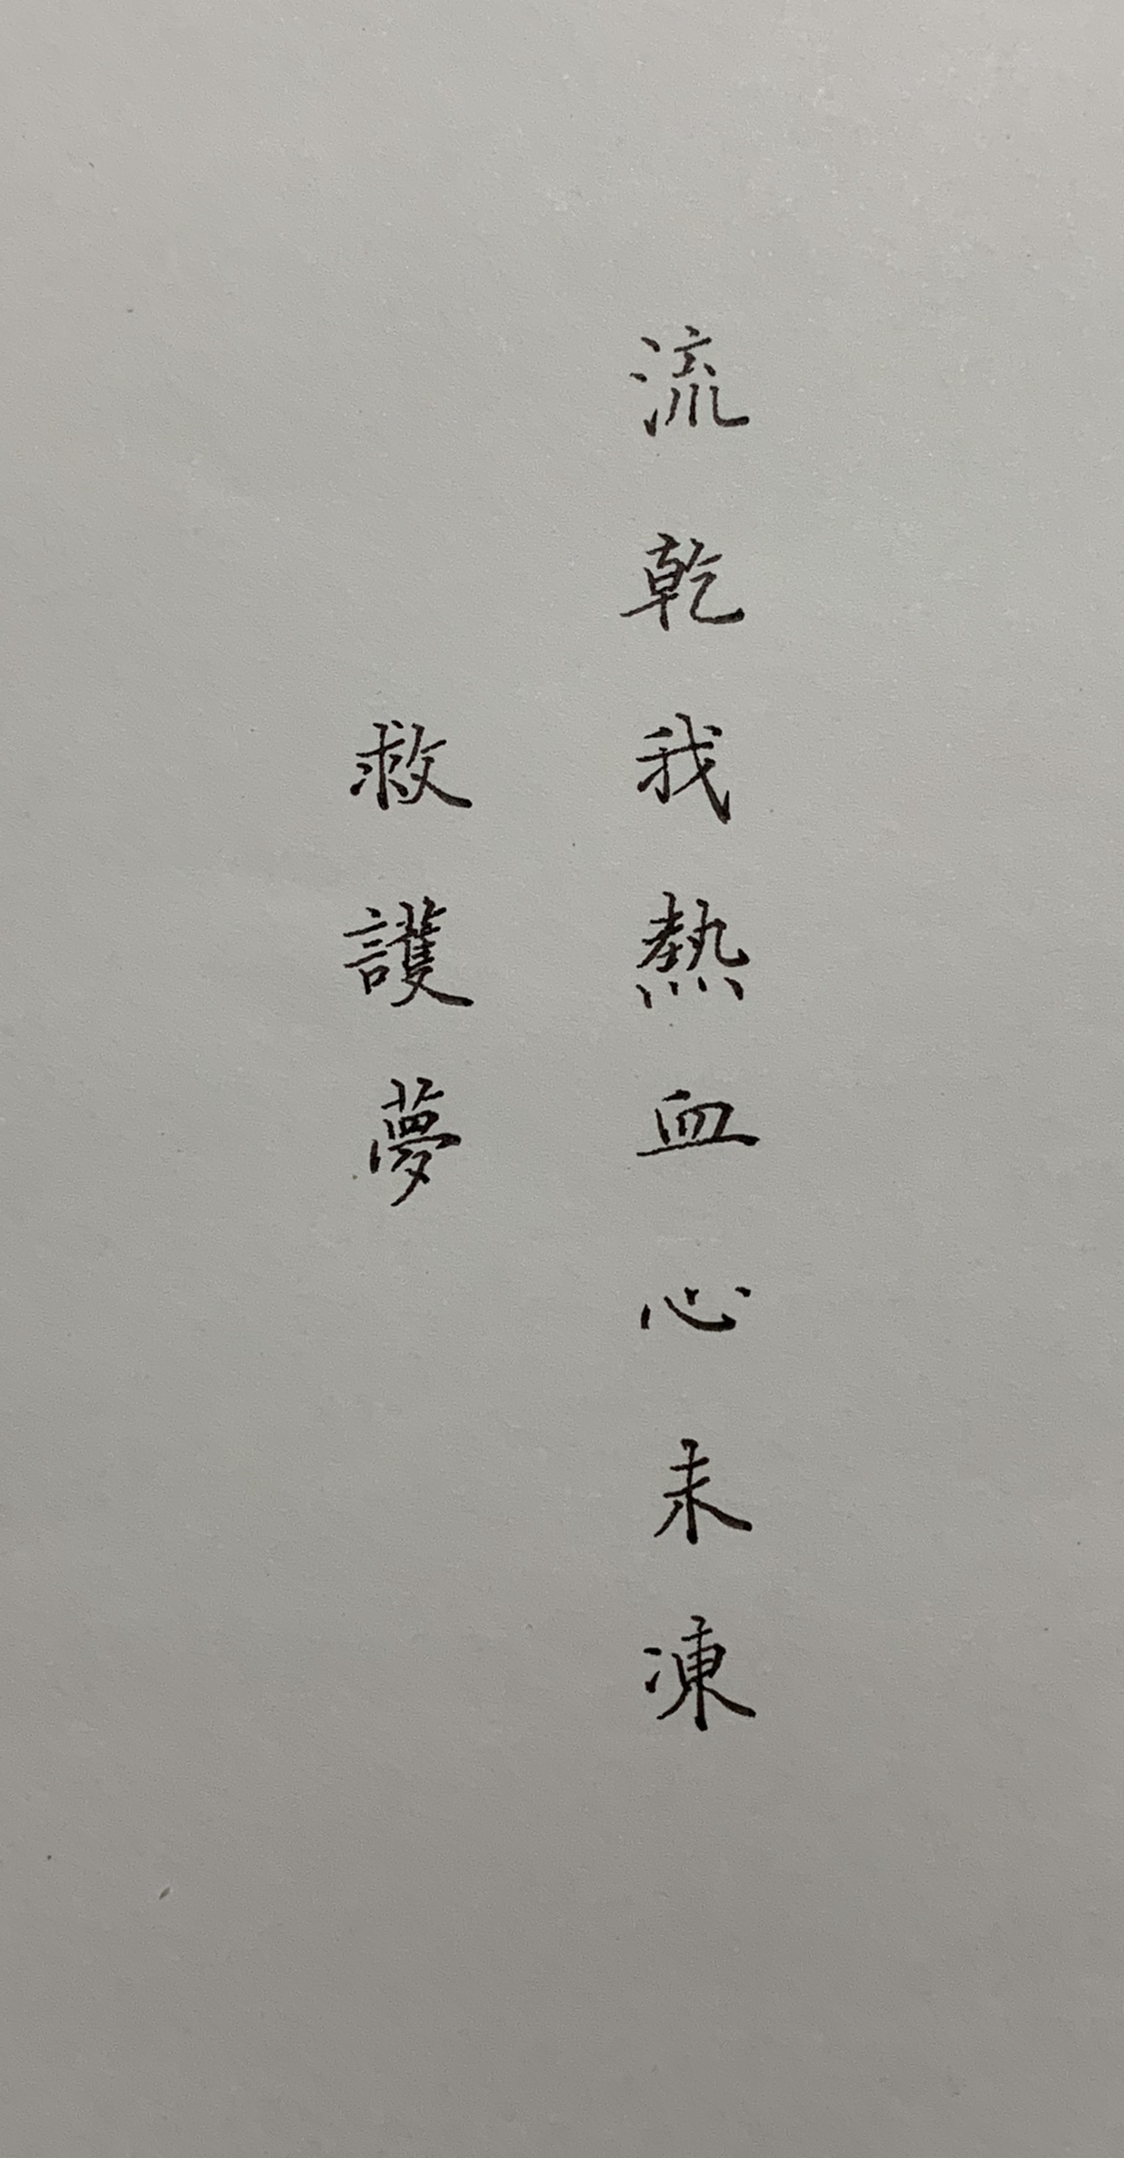 流乾我熱血心未凍
救護夢